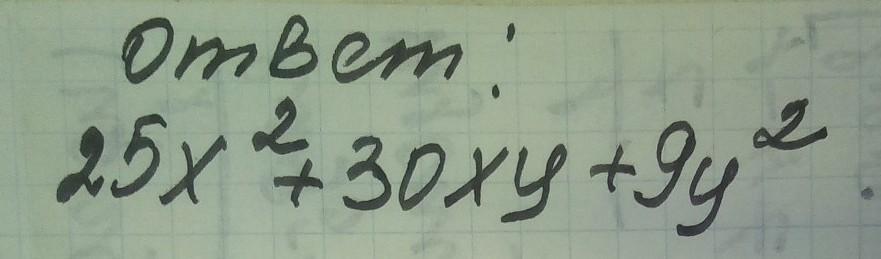 Ответ:
25x²+30xy+9y².